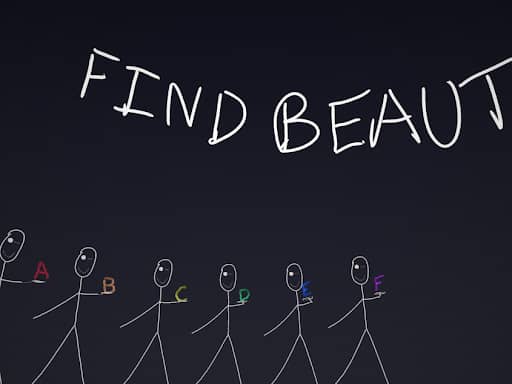 FIND BEAUT
A B C D E F